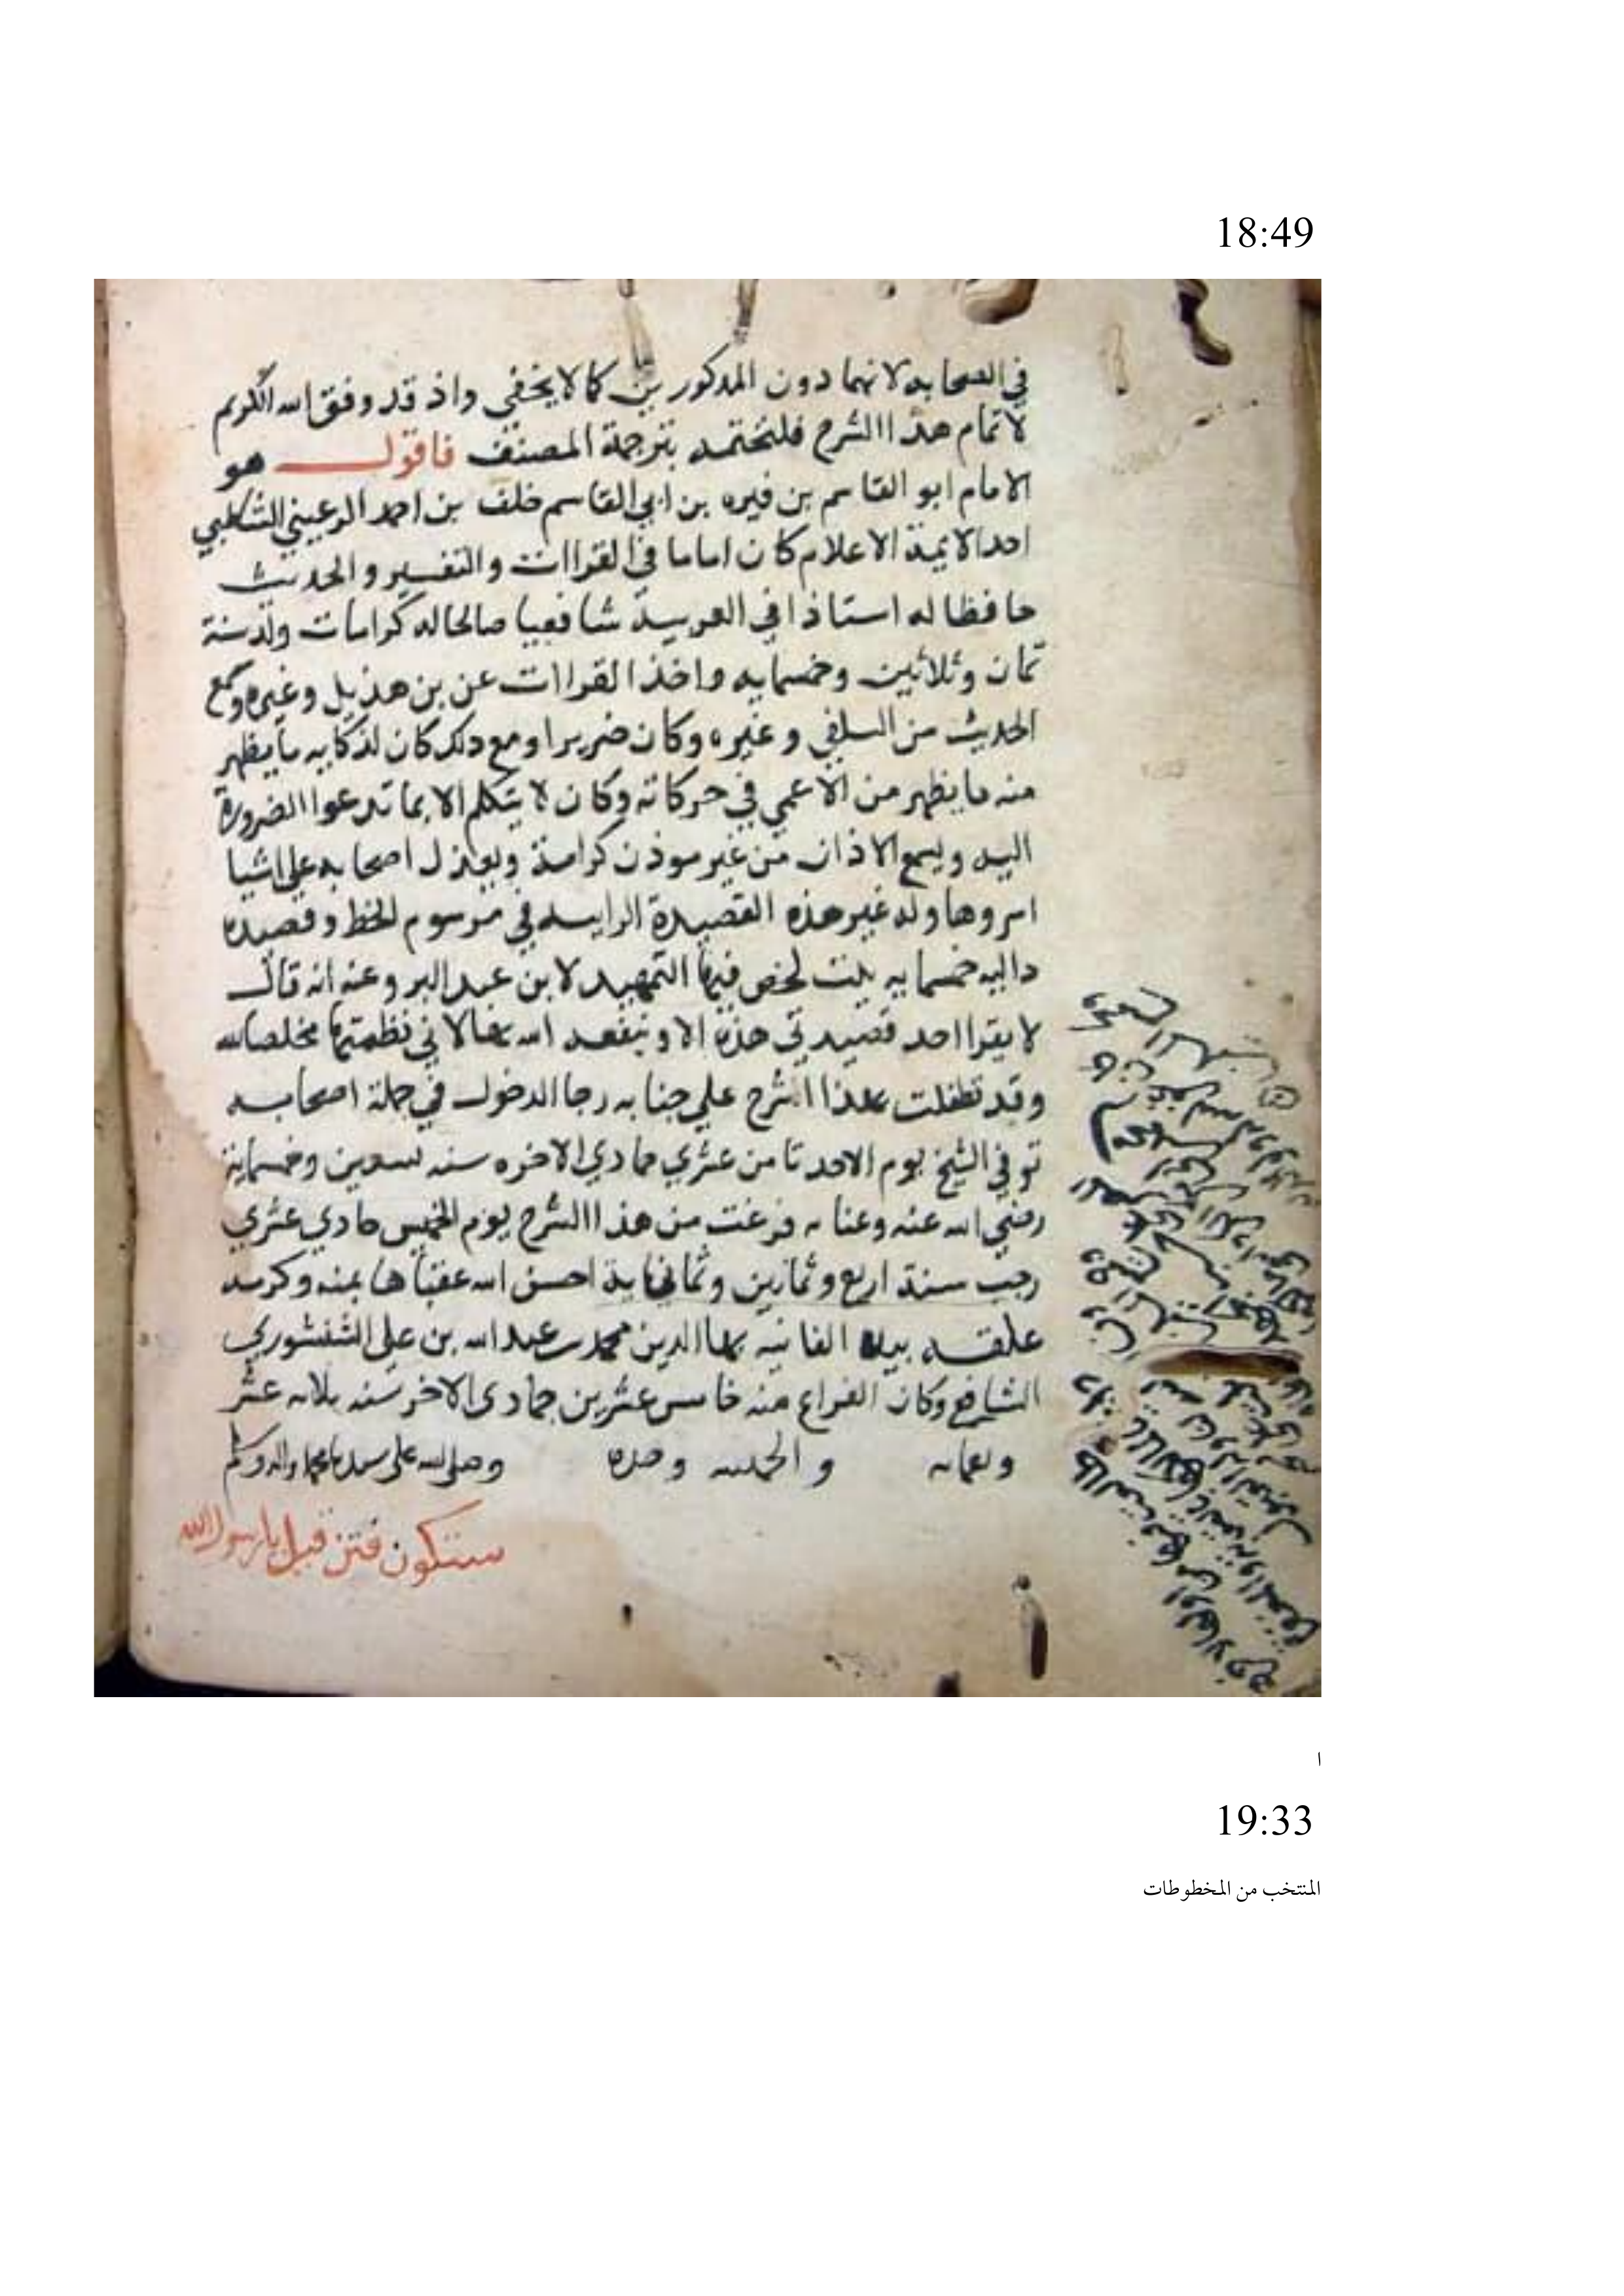 18:49
في الصحابه لانهما دون المذكورين كما لا يخفي واذ قد وفق الله الكريم
لاتمام هذا الشرح فلنختمه بترجمة المصنف فاقول هو
الامام ابو القاسم بن فيره بن ابي القاسم خلف بن احمد الرعيني الشاطبي
احد الايمة الاعلام كان اماما في القراات والتفسير والحديث
حافظا له استاذا في العربية شافعيا صالحا له كرامات ولد سنة
ثمان وثلاثين وخمسمايه واخذ القراات عن بن هذيل وغيره وسمع
الحديث من السلفي وغيره وكان ضريرا ومع ذلك كان لذكايه ما يظهر
منه ما يظهر من الاعمي في حركاته وكان لا يتكلم الا بما تدعوا الضرورة
اليه ويسمع الاذان من غير موذن كرامة ويعذل اصحابه علي اشيا
اسروها وله غير هذه القصيدة الراييه في مرسوم الخط وقصيده
داليه خمسمايه بيت لخص فيها التمهيد لابن عبد البر وعنه انه قال
لا يقرا احد قصيدتي هذه الا وينفعه الله بها لاني نظمتها مخلصا لله
وقد تطفلت بهذا الشرح علي جنابه رجا الدخول في جملة اصحابه
توفي الشيخ يوم الاحد ثامن عشري جمادي الاخره سنه تسعين وخمسماية
رضي الله عنه وعنا به فرغت من هذا الشرح يوم الخميس حادي عشري
رجب سنة اربع وثمانين وثمانماية احسن الله عقباها بمنه وكرمه
علقه بيده الفانيه بها الدين محمد بن عبد الله بن علي الشنشوري
الشافعي وكان الفراغ منه خامس عشرين جمادى الاخر سنه ثلاثه عشر
وتسعمايه والحمد لله وحده وصلى الله على سيدنا محمد واله وسلم
ستكون فتن قيل يا رسول الله
ا
19:33
المنتخب من المخطوطات